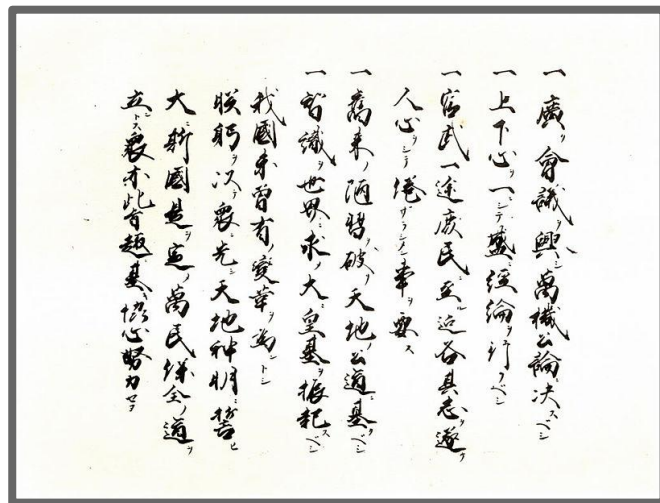 一 廣ク會議ヲ興シ萬機公論ニ决スベシ
一 上下心ヲ一ニシテ盛ニ經綸ヲ行フベシ
一 官武一途庶民ニ至ル迄各其志ヲ遂ケ
人心ヲシテ倦マザラシメン事ヲ要ス
一 舊来ノ陋習ヲ破リ天地ノ公道ニ基クベシ
一 智識ヲ世界ニ求メ大ニ皇基ヲ振起スベシ
我國未曾有ノ變革ヲ為ントシ
朕躬ヲ以テ衆ニ先シ天地神明ニ誓ヒ
大ニ斯國是ヲ定メ萬民保全ノ道ヲ
立ントス衆亦此旨趣ニ基キ協心努力セヨ